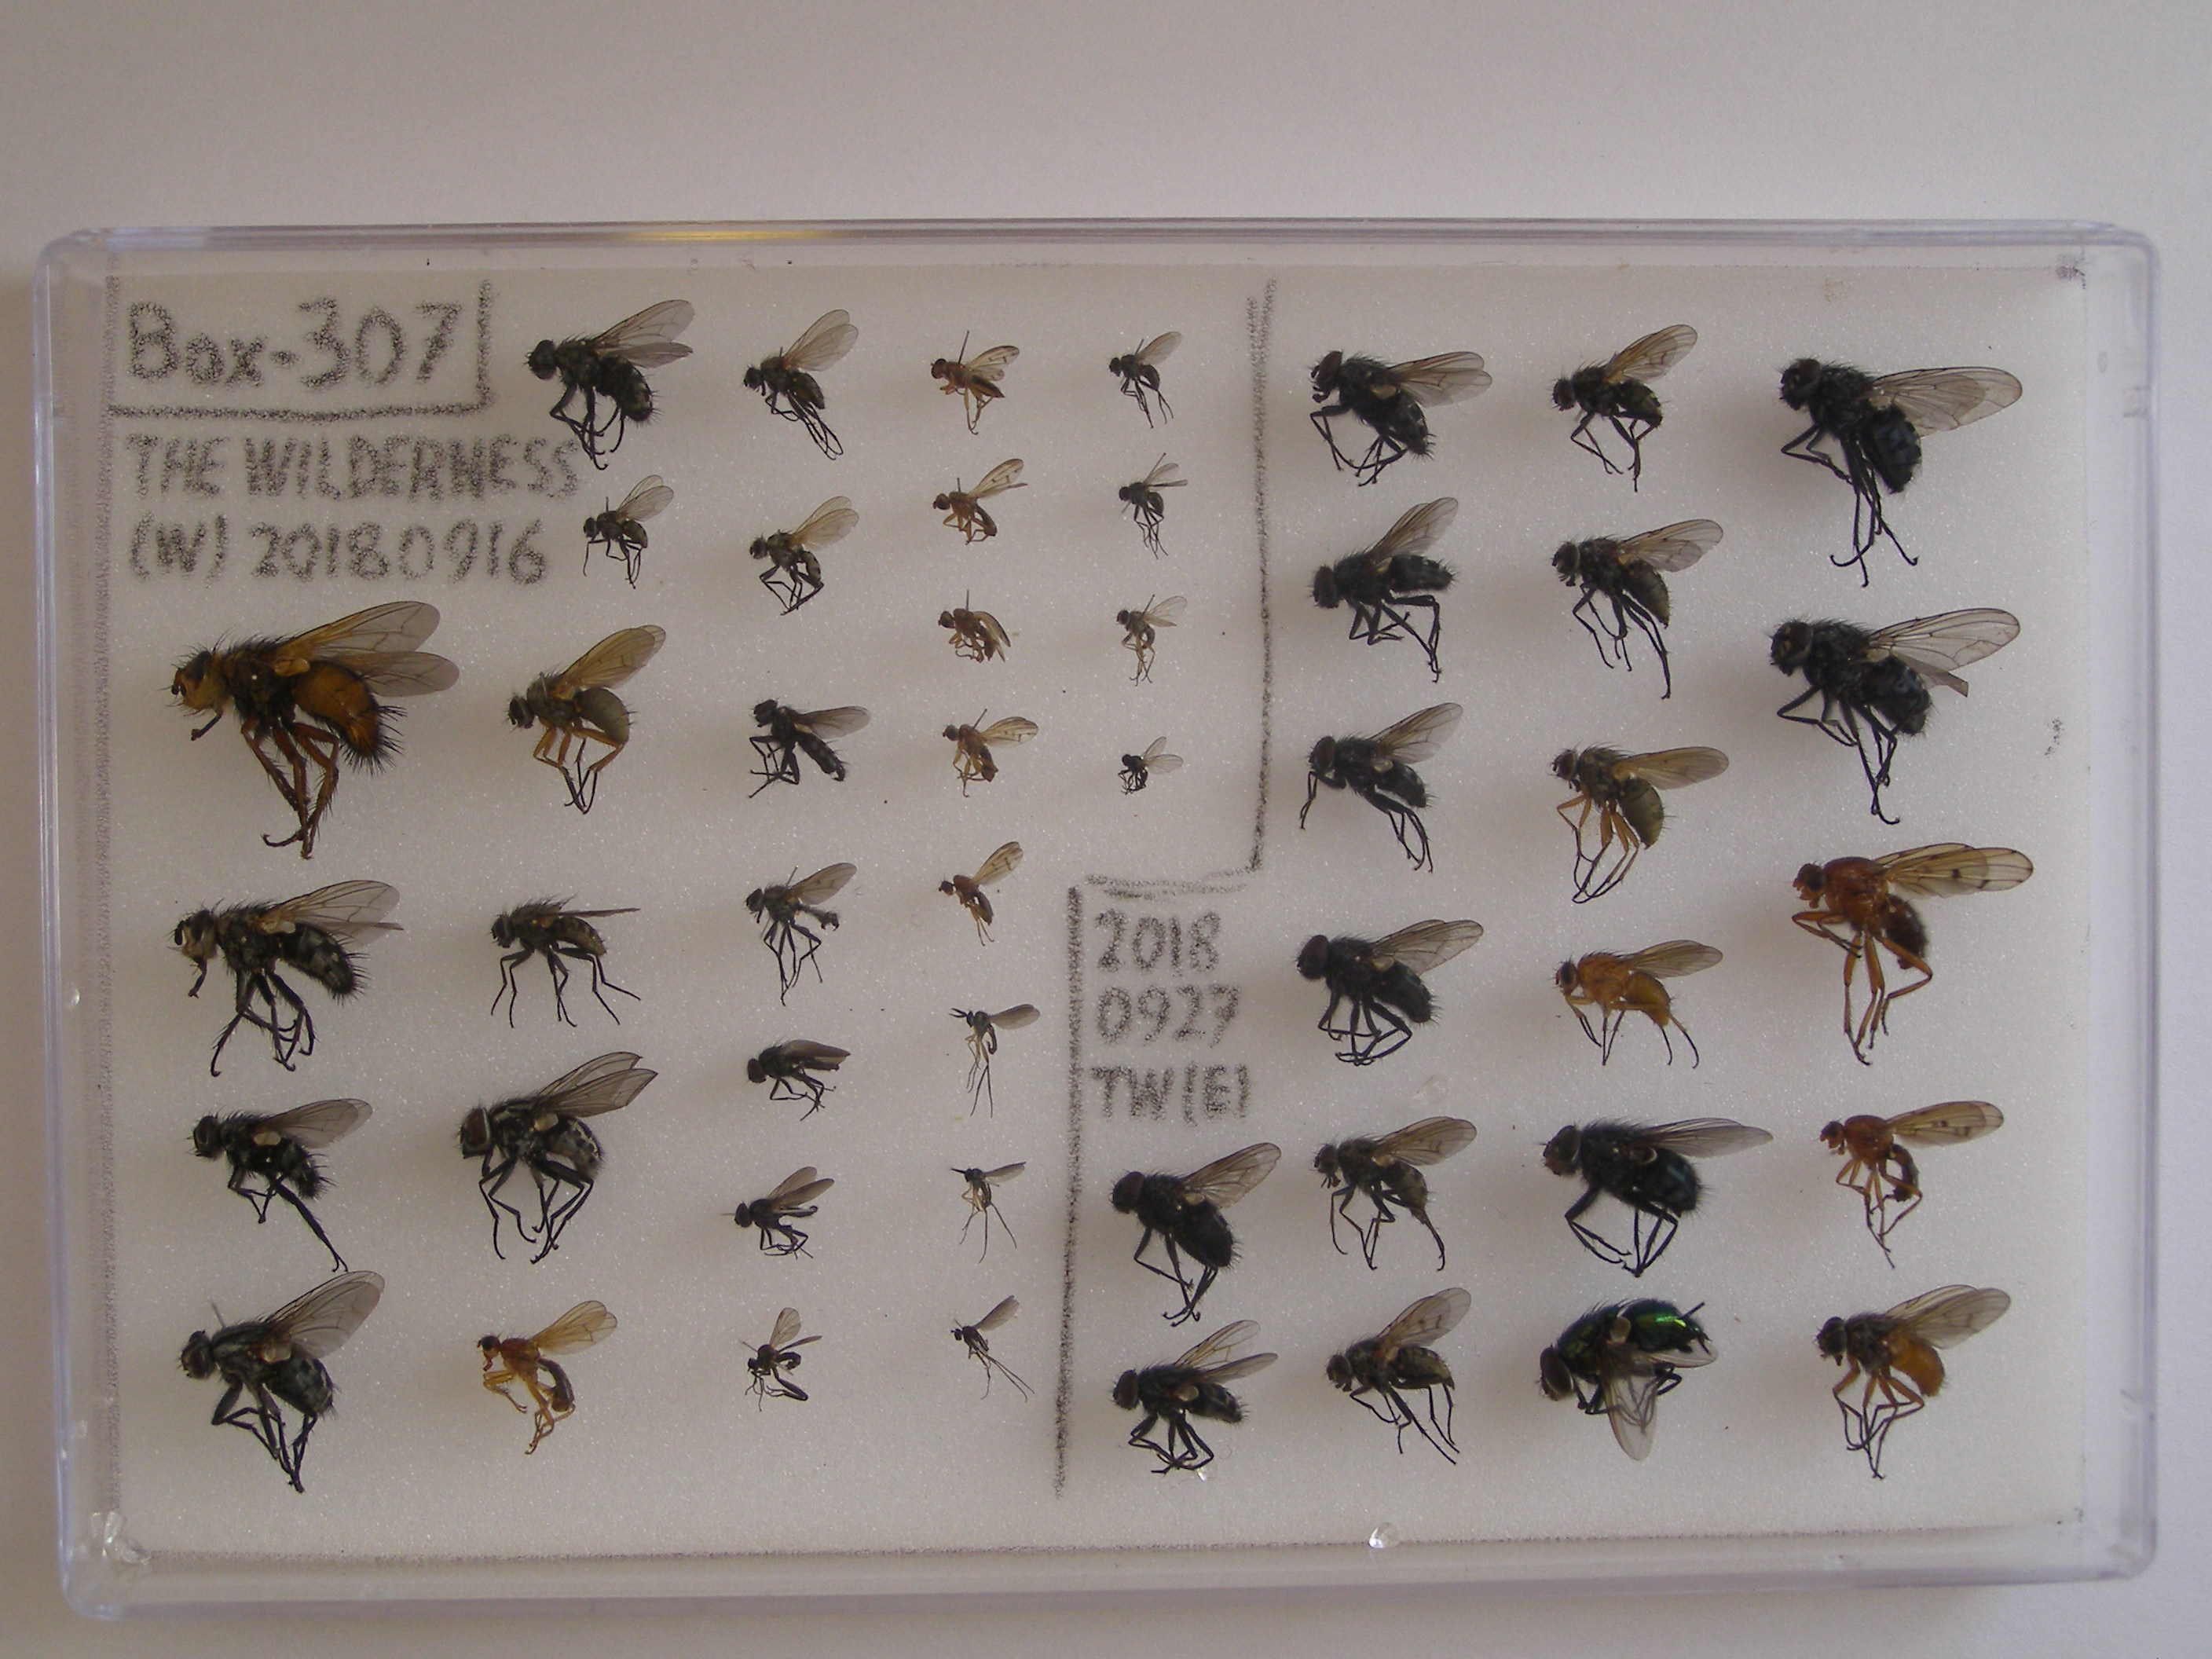 Box-307
THE WILDERNESS
(W) 20180916
2018
0927
TW(E)